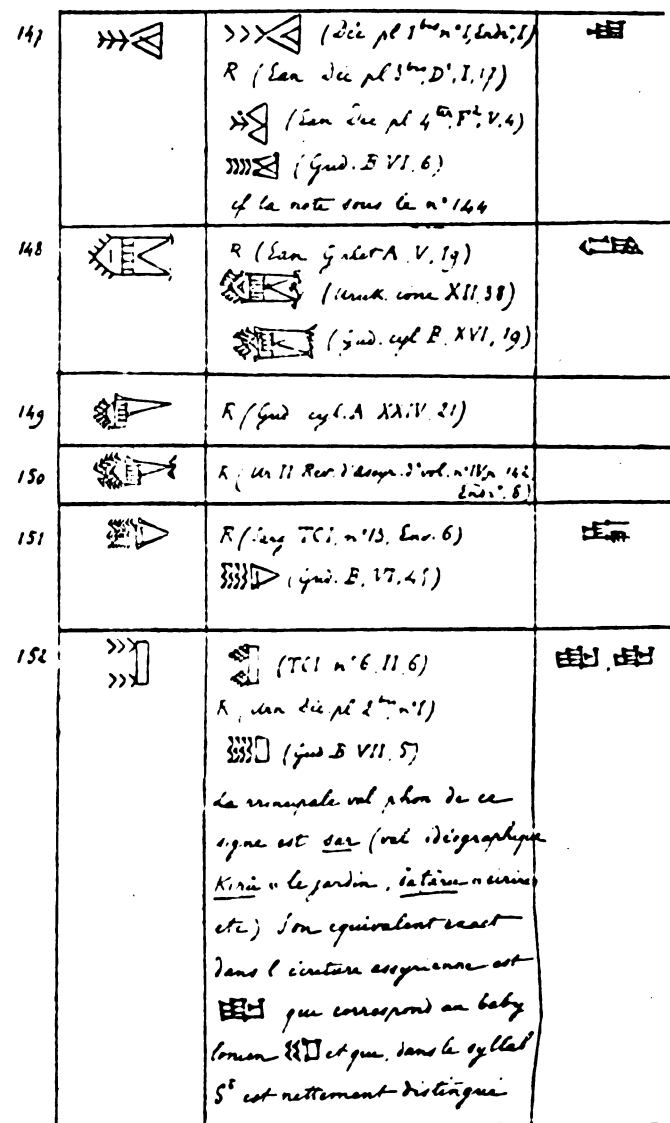 147 (Déc pl 1 bis n° 1, Endr., I)
R (Ean Déc pl 3 bis, D', I, 17)
(Ean Déc pl 4 ter, F², V, 4)
(Gud. B VI, 6)
cf la note sous le n° 144
148 R (Ean galet A, V, 19)
(Uruk. cone XII, 38)
(Gud. cyl B, XVI, 19)
149 R (Gud cyl. A XXIV 21)
150 R (Ur II Rev. d'assyr. d' vol. n° IV p. 142
151 R (Sarg TCI, n° 13, Env. 6)
(Gud. B, VI, 45)
152 (TCI n° 6, II, 6)
R Urn Déc pl 2 bis n° 1)
(Gud B VII, 5)
La principale val phon de ce
signe est sar (val idéographique
Kirû « le jardin, šaṭâru « écrire »
etc) Son équivalent exact
dans l'écriture assyrienne est
que correspond au baby
lonien et que, dans le syllab
Sb est nettement distingué